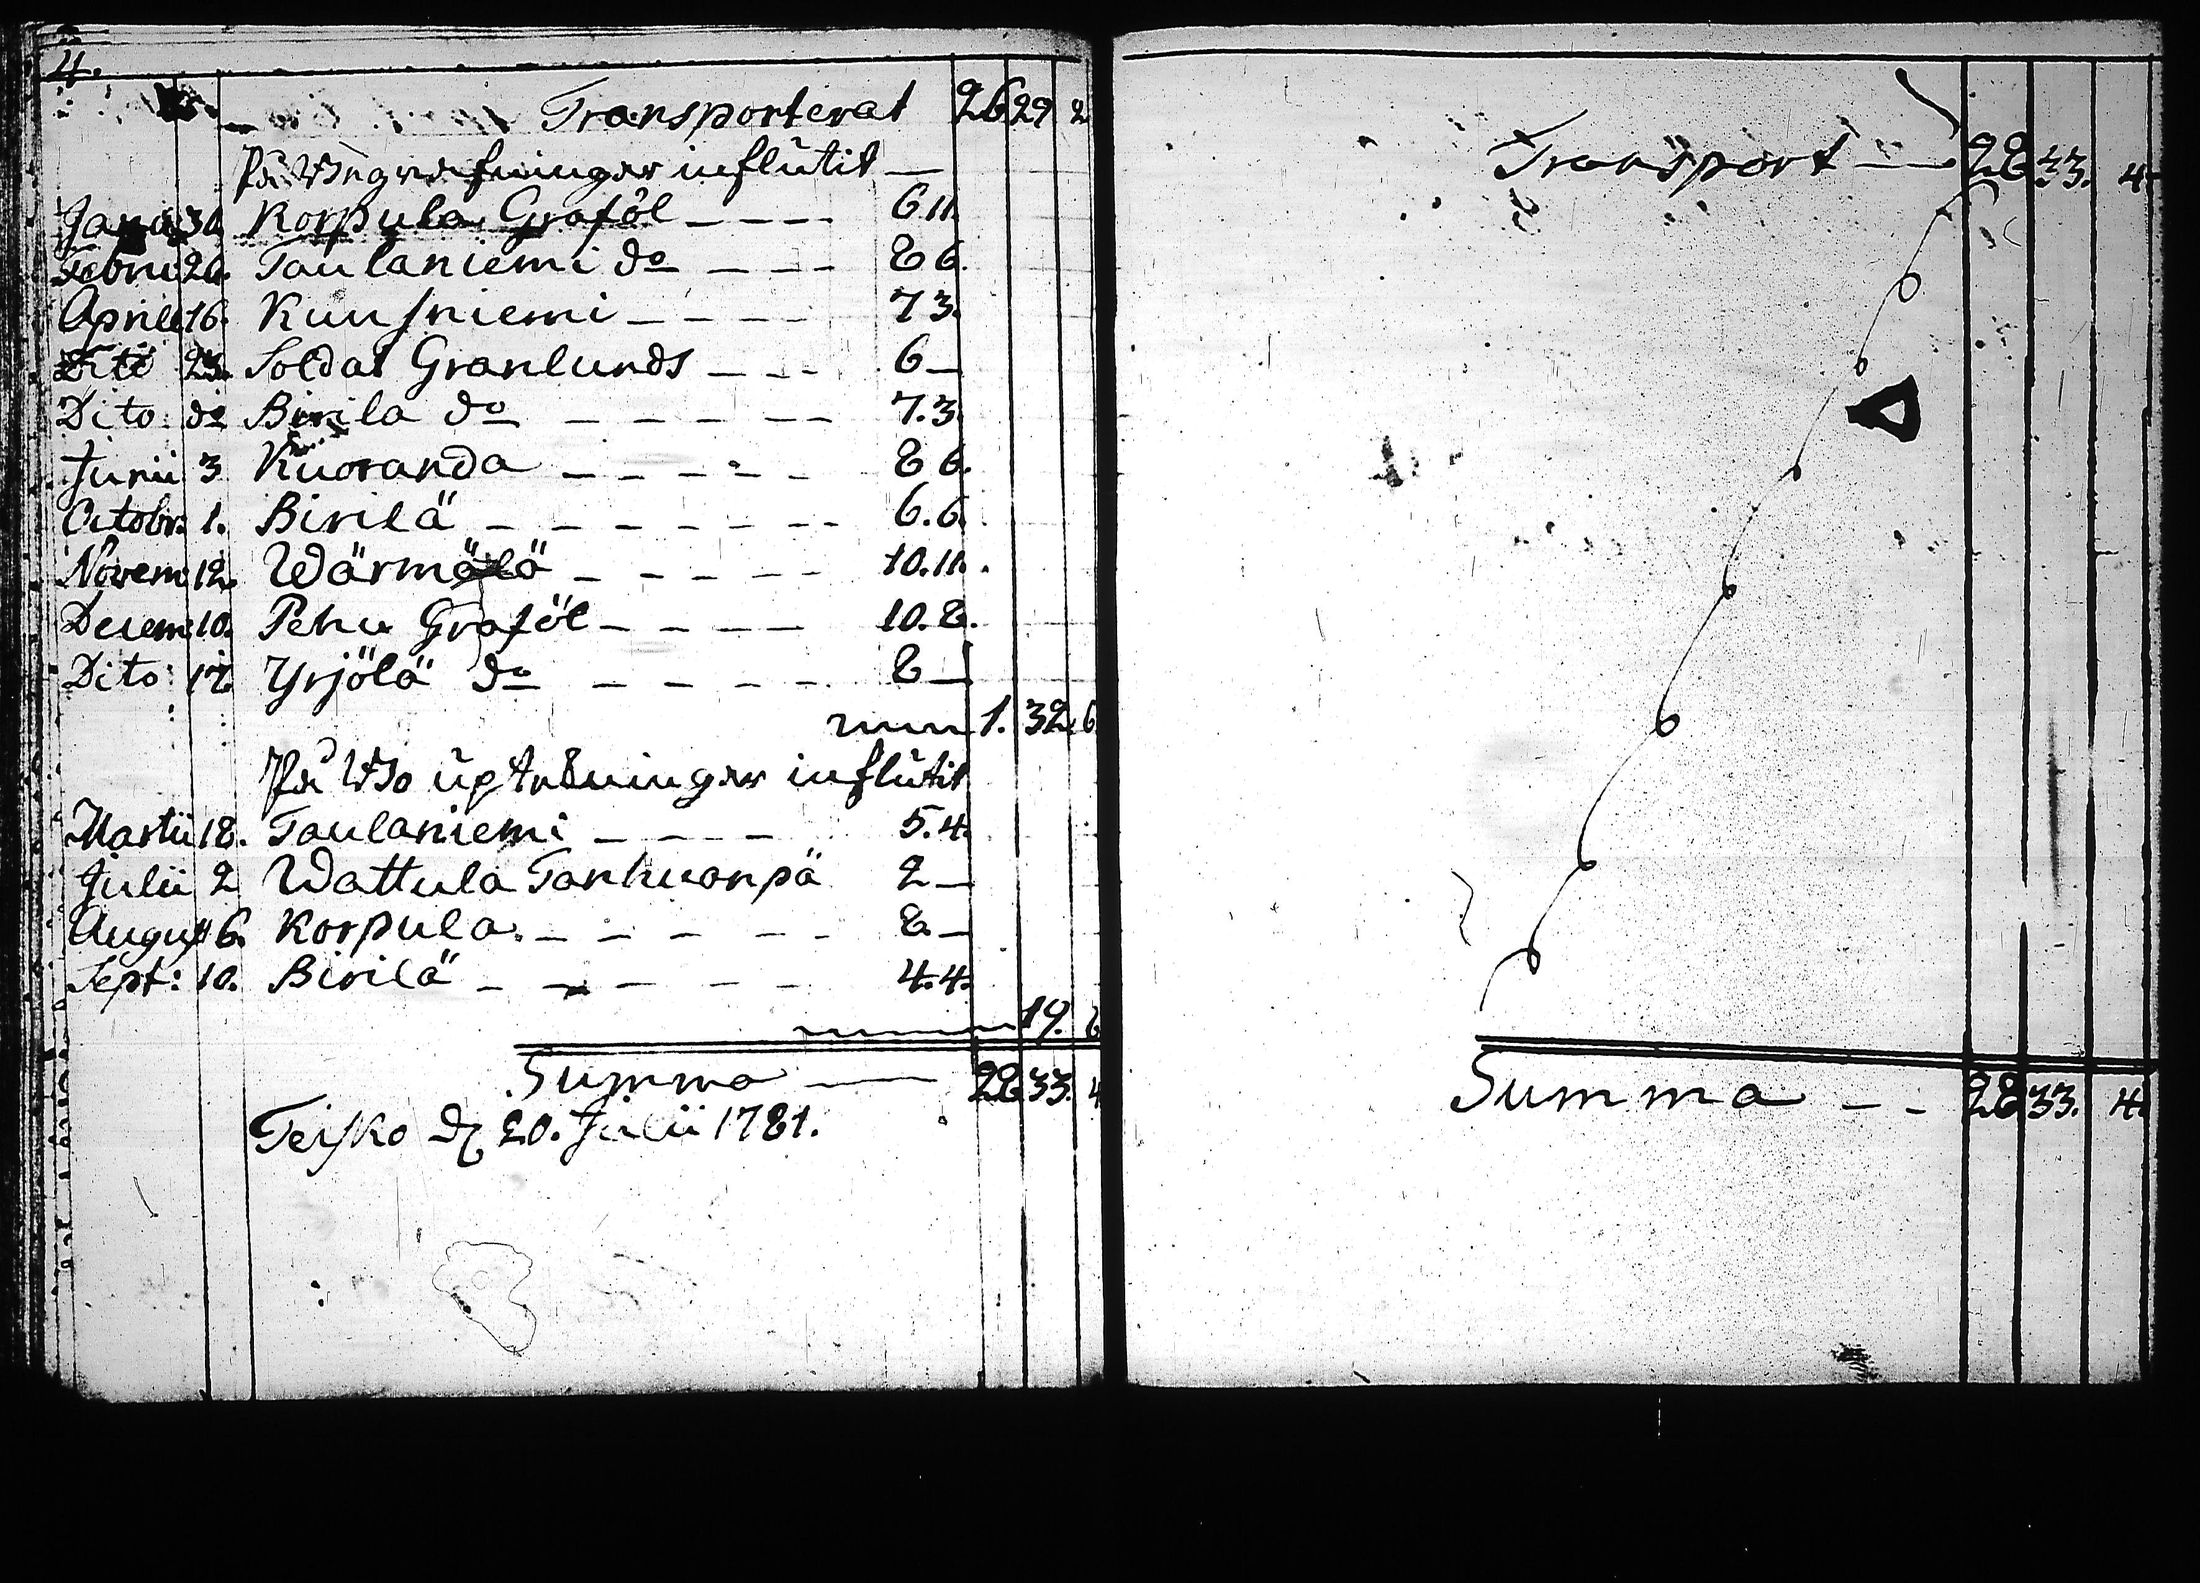 4.
Transporterat 26 29 2
På Begrafningar inflútit —
Janu: 30 Korpula Graföl — — — — 6 11.
Febru: 26. Taulaniemi do — — — 8 6.
Aprill 16. Kuusniemi — — — — 7 3.
Dito 23. Soldat Granlunds — — — 6 —
Dito do Birila do — — — — — — 7. 3.
Junii 3 Kuoranda — — — — — 8 6.
Octobr: 1. Birilä — — — — — — — — 6. 6.
Novem: 12. Wärmälä — — — — — 10. 11.
Decem: 10. Pehu Graföl — — — — 10. 8.
Dito: 17 Yrjölä do — — — — 8 —
1. 32. 6
På úptagningar inflútit
Martii 18. Taulaniemi — — — — 5. 4.
Julii 2 Wattula Tanhuanpä 2 —
August 6. Korpula. — — — — — — 8 —
Sept: 10. Birilä — — — — — — 4. 4.
19. 8
Summa — 28 33. 4
Teisko d 20. Julii 1781.
Transport — 28 33. 4.
Summa — — 28 33. 4.